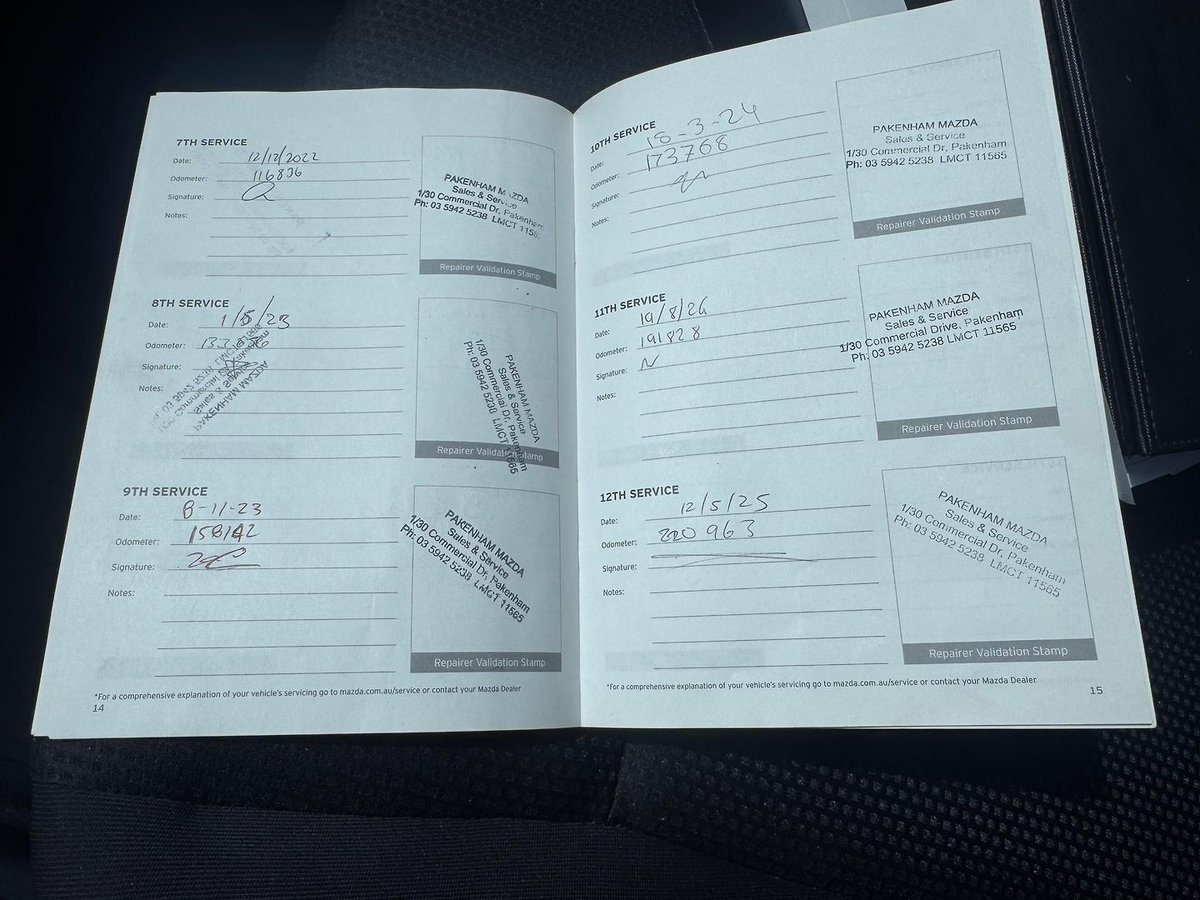 7TH SERVICE
Date: 12/12/2022
Odometer: 116836
Signature:
Notes:
PAKENHAM MAZDA
Sales & Service
1/30 Commercial Dr, Pakenham
Ph: 03 5942 5238 LMCT 1156
Repairer Validation Stamp
8TH SERVICE
Date: 1/5/23
Odometer:
Signature:
Notes:
PAKENHAM MAZDA
Sales & Service
Ph: 03 5942 5238 LMCT
PAKENHAM MAZDA
Sales & Service
1/30 Commercial Dr, Pakenham
Ph: 03 5942 5238 LMCT 11565
Repairer Validation Stamp
9TH SERVICE
Date: 8-11-23
Odometer: 158142
Signature:
Notes:
PAKENHAM MAZDA
Sales & Service
1/30 Commercial Dr, Pakenham
Ph: 03 5942 5238 LMCT 11565
Repairer Validation Stamp
*For a comprehensive explanation of your vehicle's servicing go to mazda.com.au/service or contact your Mazda Dealer
14
10TH SERVICE
Date: 18-3-24
Odometer: 173768
Signature:
Notes:
PAKENHAM MAZDA
Sales & Service
1/30 Commercial Dr, Pakenham
Ph: 03 5942 5238 LMCT 11565
Repairer Validation Stamp
11TH SERVICE
Date: 19/8/24
Odometer: 191828
Signature:
Notes:
PAKENHAM MAZDA
Sales & Service
1/30 Commercial Drive, Pakenham
Ph: 03 5942 5238 LMCT 11565
Repairer Validation Stamp
12TH SERVICE
Date: 12/5/25
Odometer: 220963
Signature:
Notes:
PAKENHAM MAZDA
Sales & Service
1/30 Commercial Dr, Pakenham
Ph: 03 5942 5238 LMCT 11565
Repairer Validation Stamp
*For a comprehensive explanation of your vehicle's servicing go to mazda.com.au/service or contact your Mazda Dealer
15